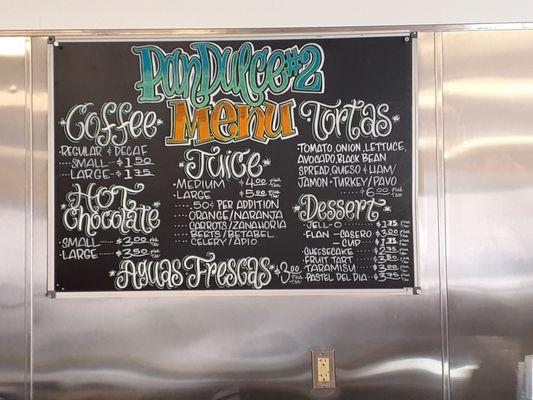 PanDulce#2
Menu
Coffee
REGULAR & DECAF
SMALL $1.50
LARGE $1.75
Hot Chocolate
SMALL $3.00
LARGE $3.50
Juice
MEDIUM $4.00 PLUS TAX
LARGE $5.00 PLUS TAX
.50¢ PER ADDITION
ORANGE/NARANJA
CARROTS/ZANAHORIA
BEETS/BETABEL
CELERY/APIO
Aguas Frescas $3.00 PLUS TAX
Tortas
TOMATO, ONION, LETTUCE,
AVOCADO, BLACK BEAN
SPREAD, QUESO & HAM/
JAMON - TURKEY/PAVO
$6.00 PLUS TAX
Dessert
JELL-O $1.75
FLAN - CASERO $3.00
- CUP $1.75
CHEESECAKE $2.75
FRUIT TART $3.50
TARAMISU $3.00
PASTEL DEL DIA $3.75